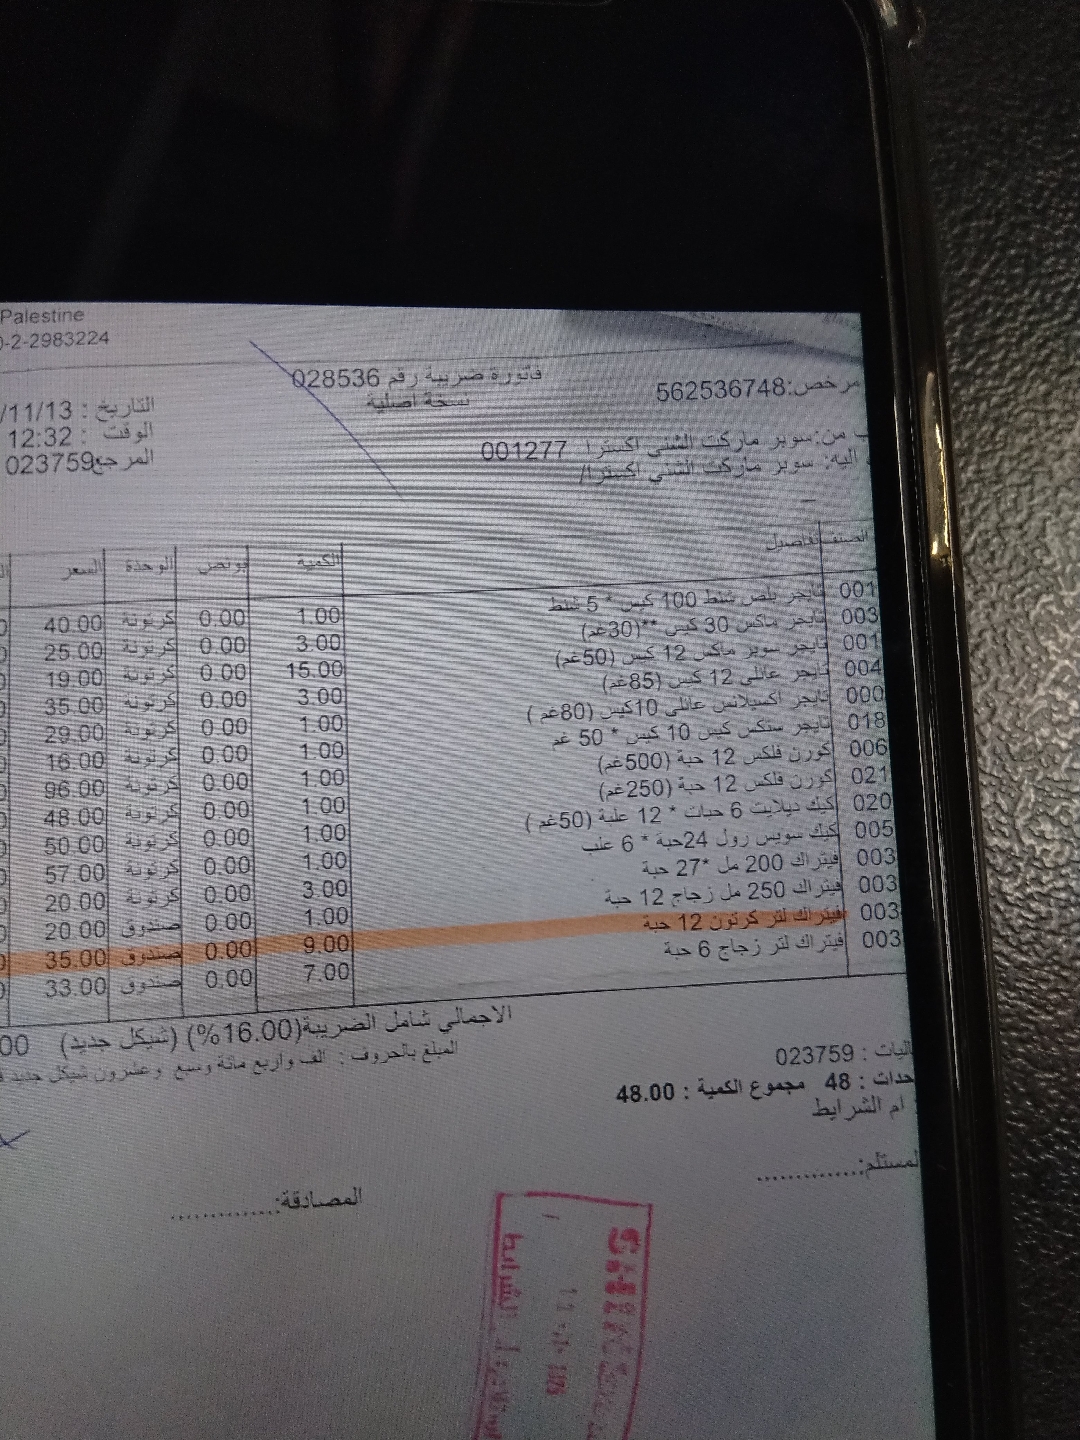 Palestine
0-2-2983224
فاتورة ضريبة رقم 028536
نسخة اصلية
مرخص:562536748
التاريخ : /11/13
الوقت : 12:32
المرجع023759
من:سوبر ماركت الشني اكسترا 001277
اليه: سوبر ماركت الشني اكسترا/
الصنف التفاصيل الكمية بونص الوحدة السعر
001 تايجر بلص شنط 100 كيس * 5 شنط 1.00 0.00 كرتونة 40.00
003 تايجر ماكس 30 كيس **(30غم) 3.00 0.00 كرتونة 25.00
001 تايجر سوبر ماكس 12 كيس (50غم) 15.00 0.00 كرتونة 19.00
004 تايجر عائلي 12 كيس (85غم) 3.00 0.00 كرتونة 35.00
000 تايجر اكسيلانس عائلي 10كيس (80غم ) 1.00 0.00 كرتونة 29.00
018 تايجر ستكس كيس 10 كيس * 50 غم 1.00 0.00 كرتونة 16.00
006 كورن فلكس 12 حبة (500غم) 1.00 0.00 كرتونة 96.00
021 كورن فلكس 12 حبة (250غم) 1.00 0.00 كرتونة 48.00
020 كيك ديلايت 6 حبات * 12 علبة (50غم ) 1.00 0.00 كرتونة 50.00
005 كيك سويس رول 24حبة * 6 علب 1.00 0.00 كرتونة 57.00
003 فيتراك 200 مل *27 حبة 3.00 0.00 كرتونة 20.00
003 فيتراك 250 مل زجاج 12 حبة 1.00 0.00 صندوق 20.00
003 فيتراك لتر كرتون 12 حبة 9.00 0.00 صندوق 35.00
003 فيتراك لتر زجاج 6 حبة 7.00 0.00 صندوق 33.00
الاجمالي شامل الضريبة(16.00%) (شيكل جديد) 00
المبلغ بالحروف : الف واربع مائة وسبع وعشرون شيكل جديد
023759 :
48 مجموع الكمية : 48.00
ام الشرايط
المستلم:..............
المصادقة:..............